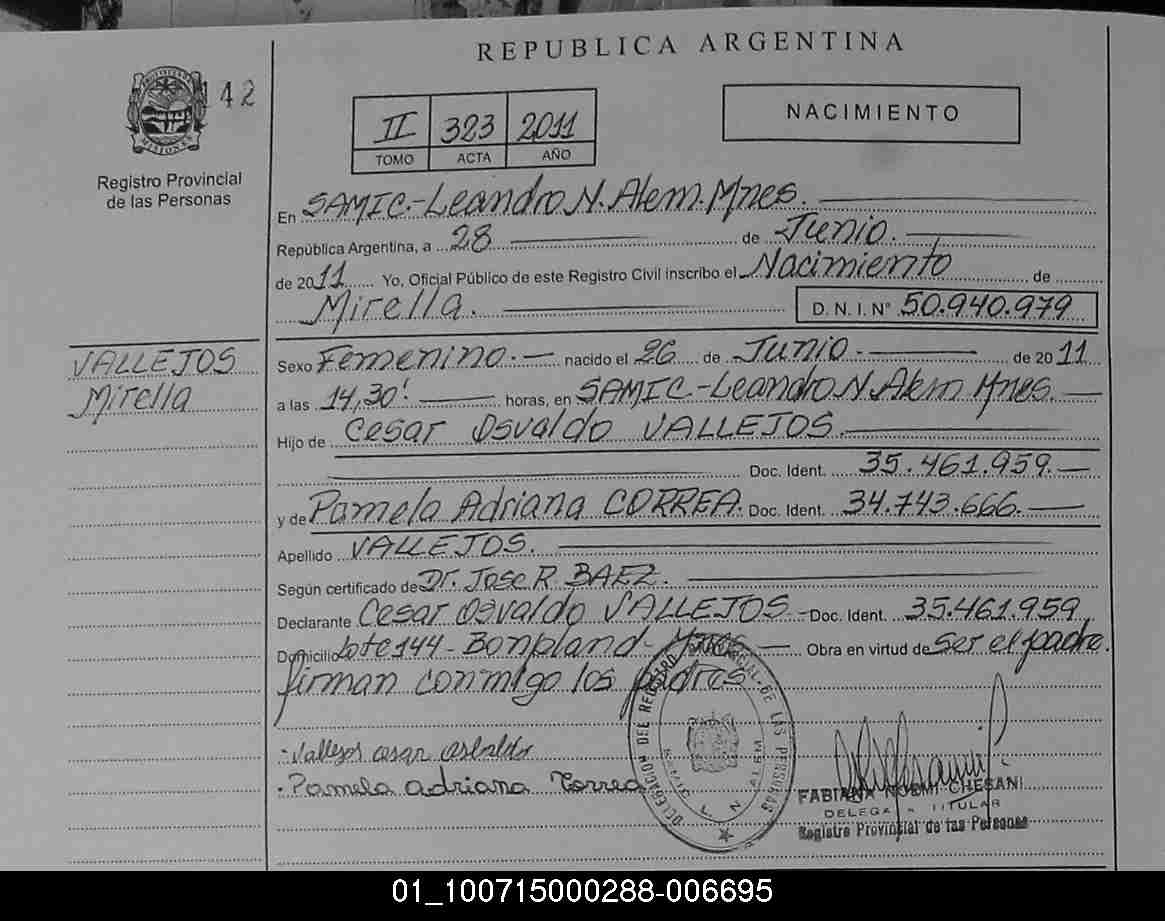 REPUBLICA ARGENTINA
142
PROVINCIA
MISIONES
Registro Provincial
de las Personas
II 323 2011
TOMO ACTA AÑO
NACIMIENTO
En SAMIC.-Leandro N. Alem. Mnes.
República Argentina, a 28 de Junio.
de 2011 Yo, Oficial Público de este Registro Civil inscribo el Nacimiento de
Mirella. D. N. I. N° 50.940.979
VALLEJOS
Mirella
Sexo Femenino.- nacido el 26 de Junio.- de 2011
a las 14,30' horas, en SAMIC.-Leandro N. Alem Mnes.
Hijo de Cesar Osvaldo VALLEJOS.
Doc. Ident. 35.461.959.
y de Pamela Adriana CORREA. Doc. Ident. 34.743.666.
Apellido VALLEJOS.
Según certificado de Dr. Jose R. BAEZ.
Declarante Cesar Osvaldo VALLEJOS - Doc. Ident. 35.461.959
Domicilio Lote 144 - Bonpland - Mnes - Obra en virtud de ser el padre.
firman conmigo los padres
DELEGACION DEL REGISTRO PROVINCIAL DE LAS PERSONAS
L. N. ALEM
Vallejos cesar osvaldo
Pamela adriana Correa
FABIANA NOEMI CHESANI
DELEGADA TITULAR
Registro Provincial de las Personas
01_100715000288-006695